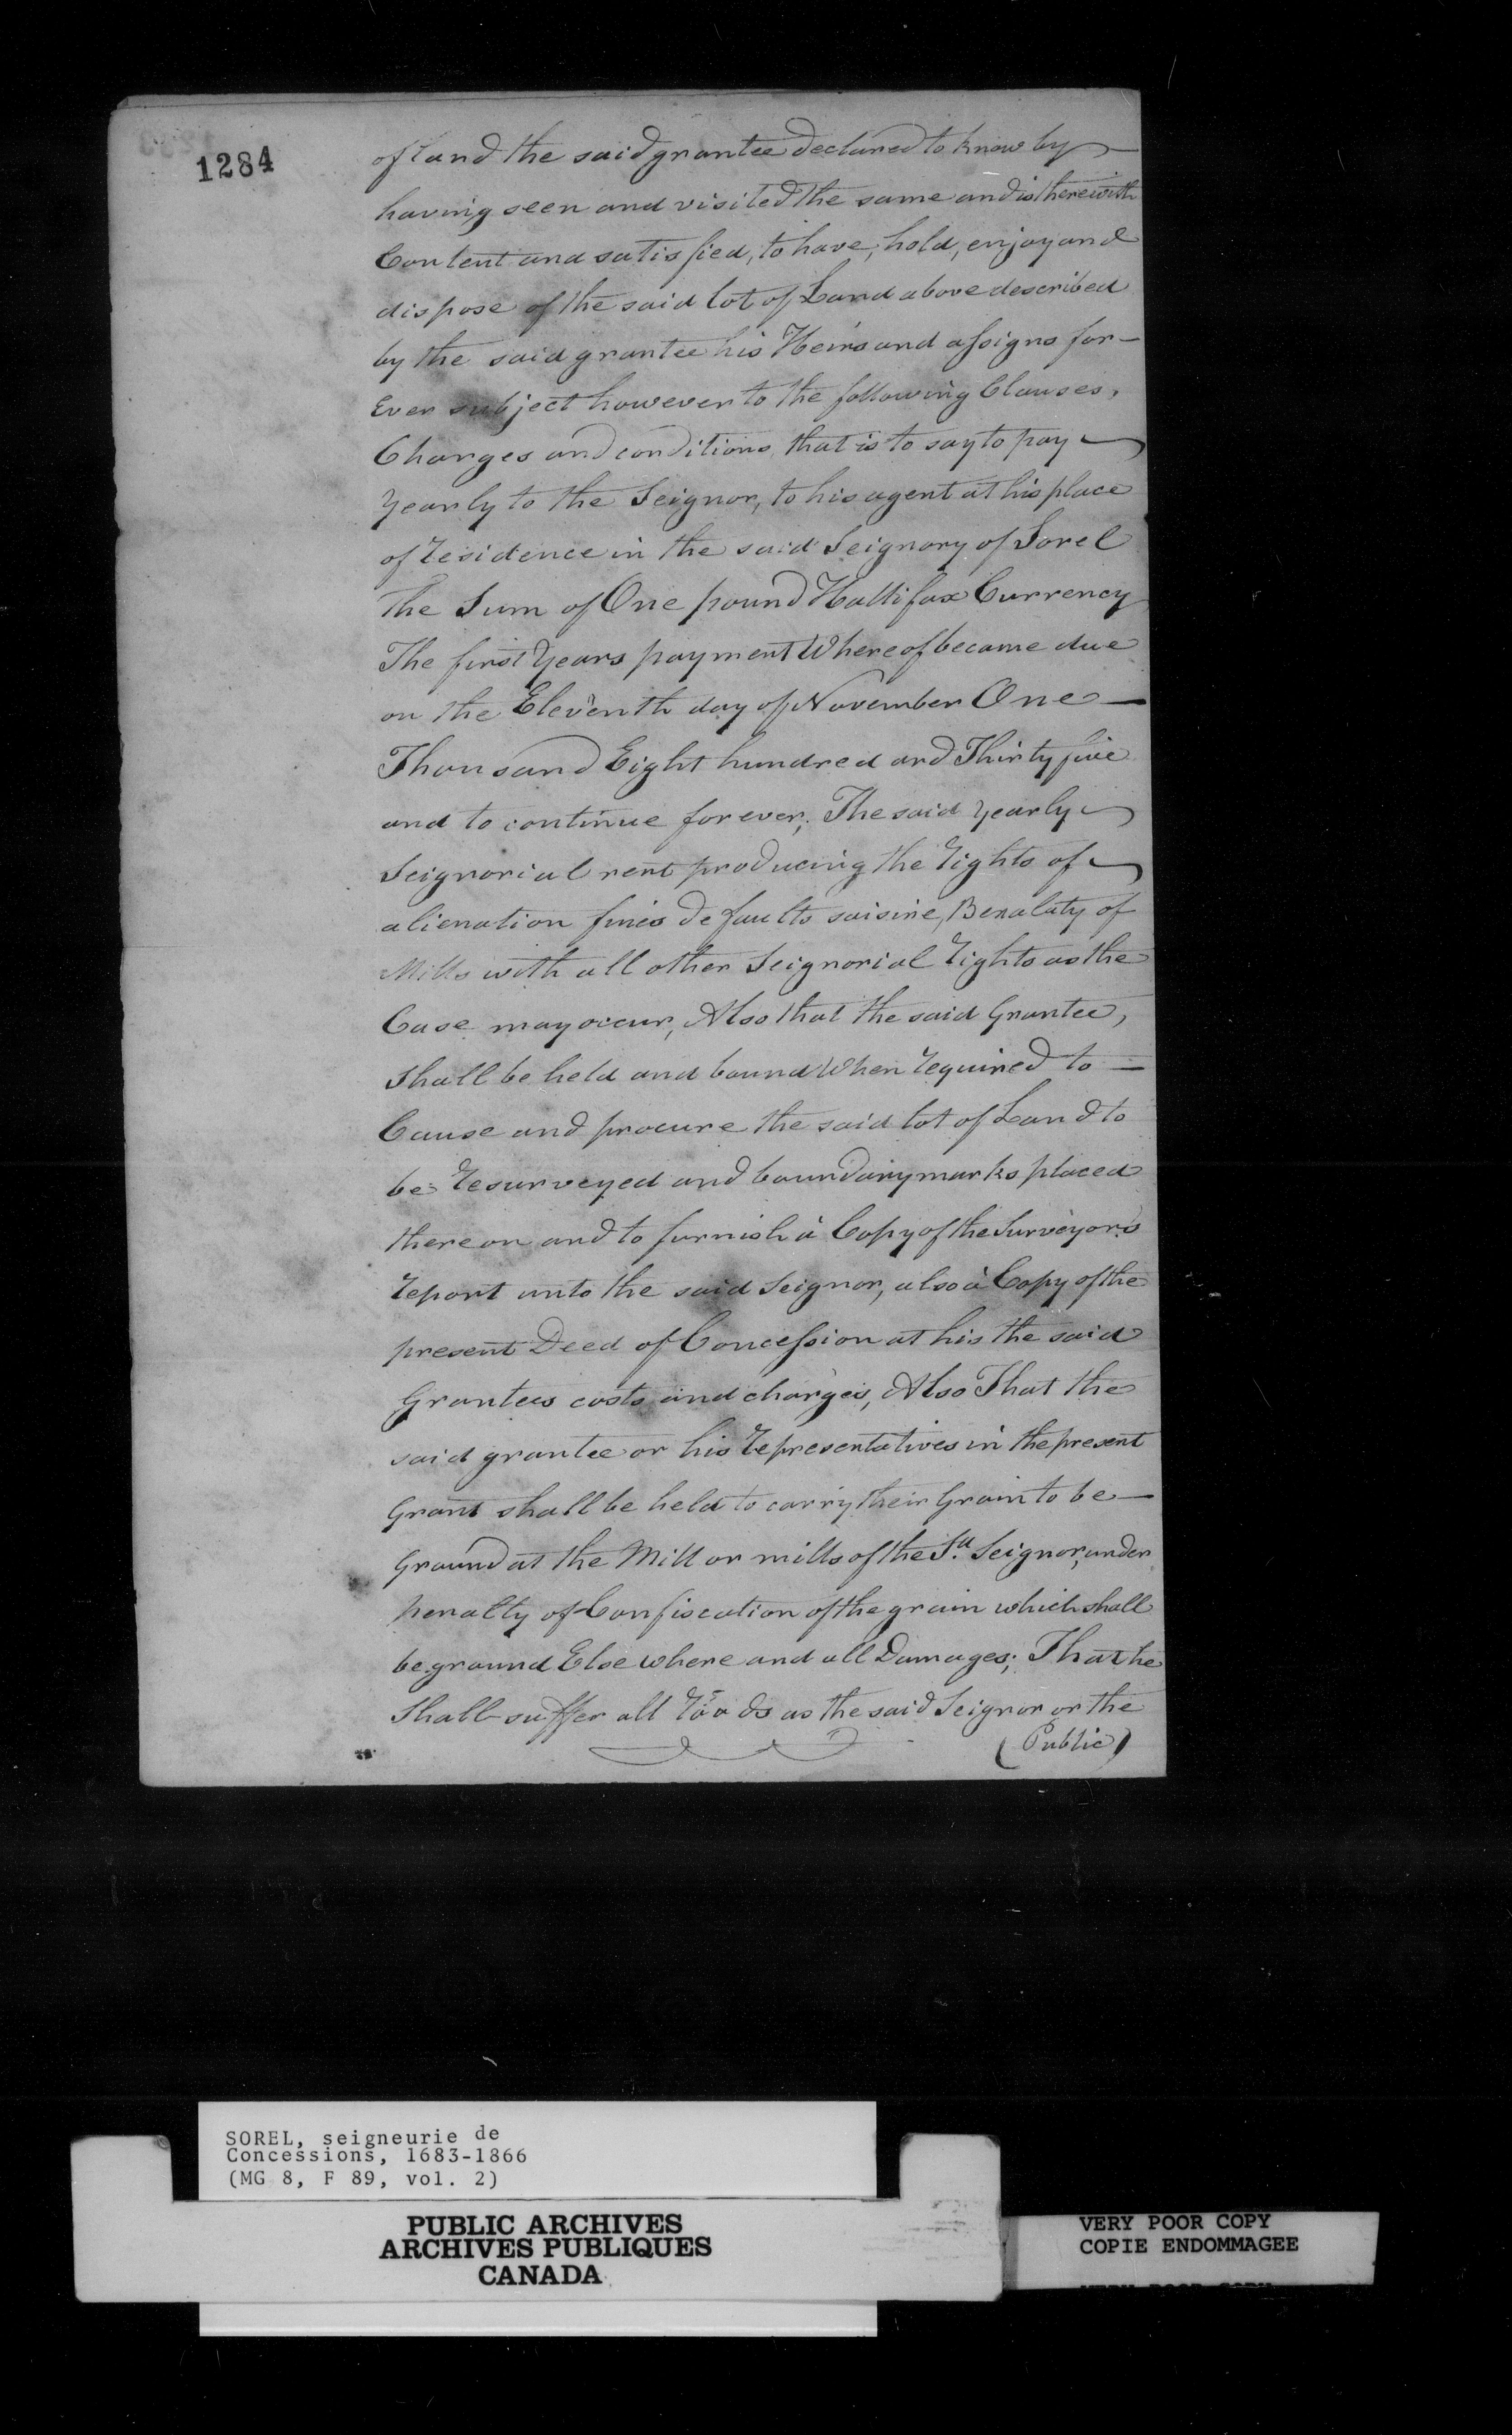 1284
of land the said grantee declared to know by
having seen and visited the same and is therewith
Content and satisfied, to have, hold, enjoy and
dispose of the said lot of Land above described
by the said grantee his Heirs and assigns for-
Ever subject however to the following Clauses,
Charges and conditions that is to say to pay
yearly to the Seignor, to his agent at his place
of residence in the said Seignory of Sorel
The Sum of One pound Hallifax Currency
The first years payment Whereof became due
on the Eleventh day of November One —
Thousand Eight hundred and Thirty five
and to continue forever, The said yearly
Seignorial rent producing the rights of
alienation fines defaults saisine, Benalaty of
Mills with all other Seignorial rights as the
Case may occur, Also that the said Grantee,
Shall be held and bound When required to —
Cause and procure the said lot of Land to
be resurveyed and boundary marks placed
thereon and to furnish à Copy of the Surveyors
report unto the said Seignor, also à Copy of the
present Deed of Concession at his the said
Grantees costs and charges, Also That the
said grantee or his representatives in the present
Grant shall be held to carry their Grain to be —
Ground at the Mill or mills of the Sd. Seignor, under
penalty of Confiscation of the grain which shall
be ground Else where and all Damages; That he
Shall suffer all roads as the said Seignor or the
(Public)
SOREL, seigneurie de
Concessions, 1683-1866
(MG 8, F 89, vol. 2)
PUBLIC ARCHIVES
ARCHIVES PUBLIQUES
CANADA
VERY POOR COPY
COPIE ENDOMMAGEE